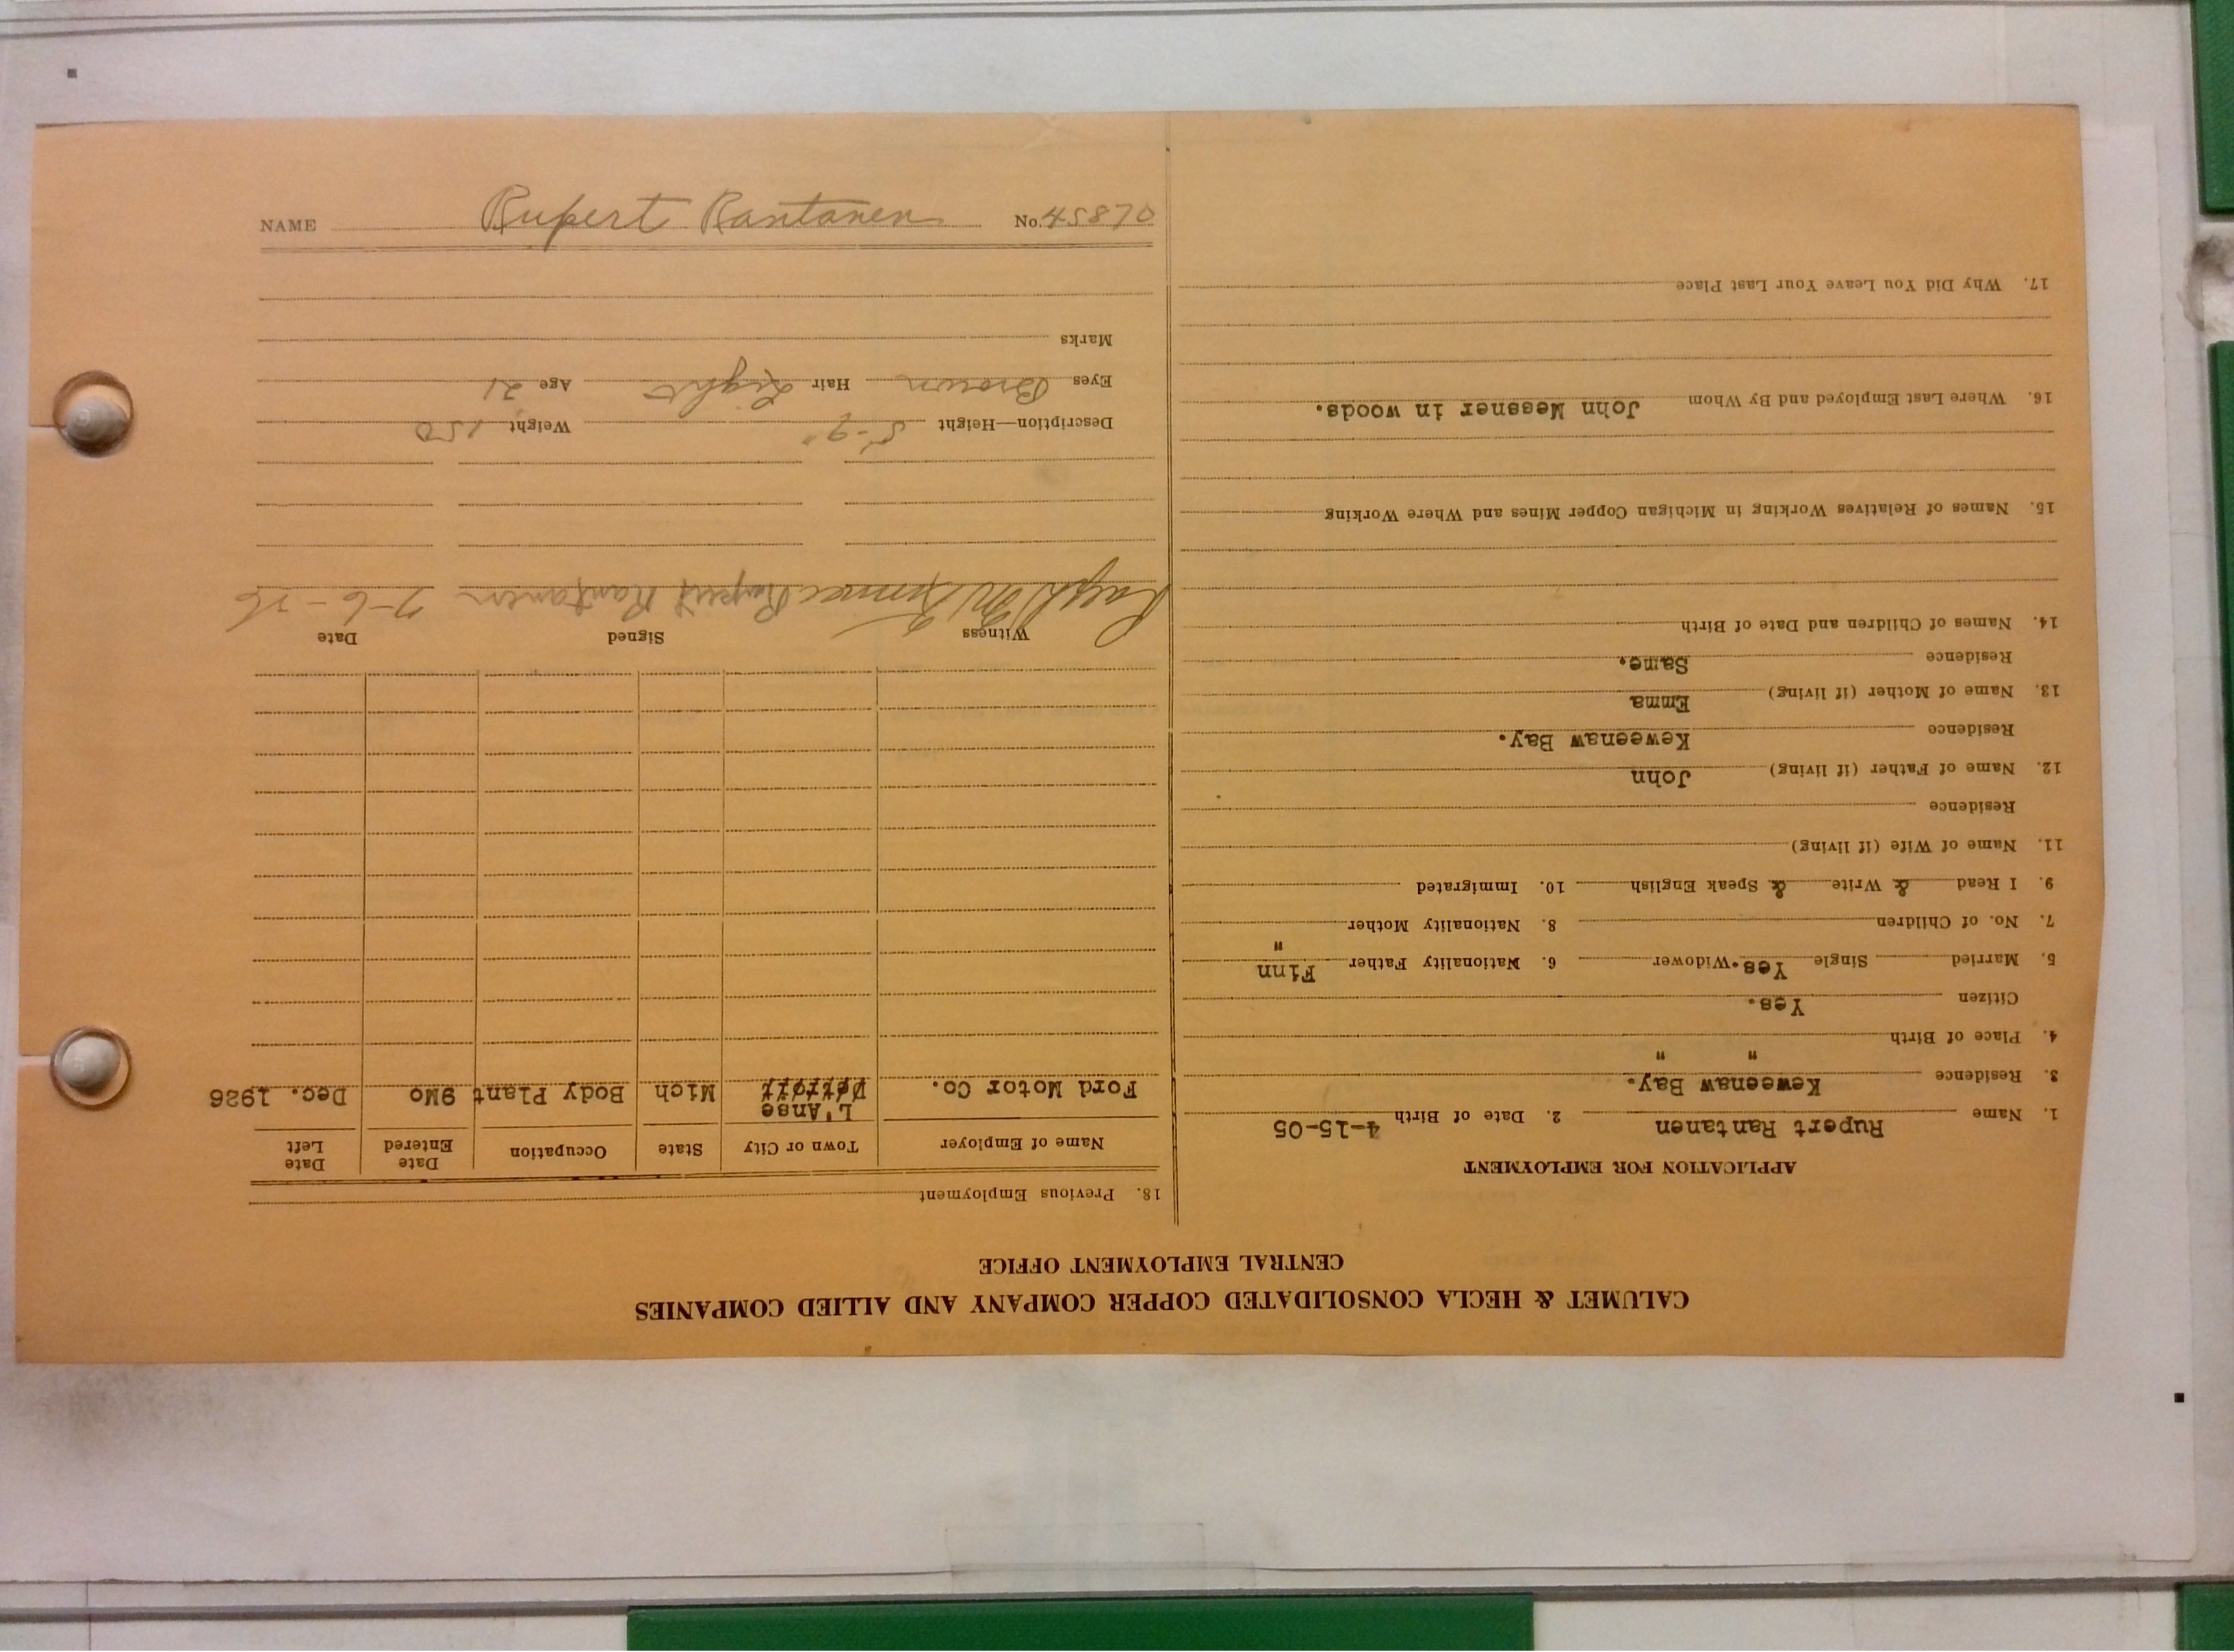 CALUMET & HECLA CONSOLIDATED COPPER COMPANY AND ALLIED COMPANIES
CENTRAL EMPLOYMENT OFFICE
APPLICATION FOR EMPLOYMENT
1. Name Rupert Rantanen 2. Date of Birth 4-15-05
3. Residence Keweenaw Bay.
4. Place of Birth " "
Citizen Yes.
5. Married Single Yes. Widower 6. Nationality Father Finn
7. No. of Children 8. Nationality Mother "
9. I Read & Write & Speak English 10. Immigrated
11. Name of Wife (if living)
Residence
12. Name of Father (if living) John
Residence Keweenaw Bay.
13. Name of Mother (if living) Emma
Residence Same.
14. Names of Children and Date of Birth
15. Names of Relatives Working in Michigan Copper Mines and Where Working
16. Where Last Employed and By Whom John Messner in woods.
17. Why Did You Leave Your Last Place
18. Previous Employment
Name of Employer Town or City State Occupation Date Entered Date Left
L'Anse
Ford Motor Co. Detroit Mich Body Plant 9Mo Dec. 1926
Witness Signed Date
Rupert Rantanen 7-6-26
Description—Height 5-9" Weight 150
Eyes Brown Hair Light Age 21
Marks
NAME Rupert Rantanen No. 45870